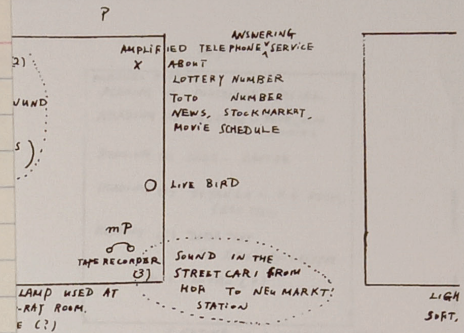 P
ANSWERING
AMPLIFIED TELEPHONE SERVICE
X ABOUT
LOTTERY NUMBER
TOTO NUMBER
NEWS, STOCKMARKT,
MOVIE SCHEDULE
2)
UND
S )
O LIVE BIRD
mP
TAPE RECORDER
(3)
SOUND IN THE
STREET CAR 1 FROM
HDF TO NEUMARKT!
STATION
LAMP USED AT
-RAY ROOM.
E (?)
LIGH
SOFT,